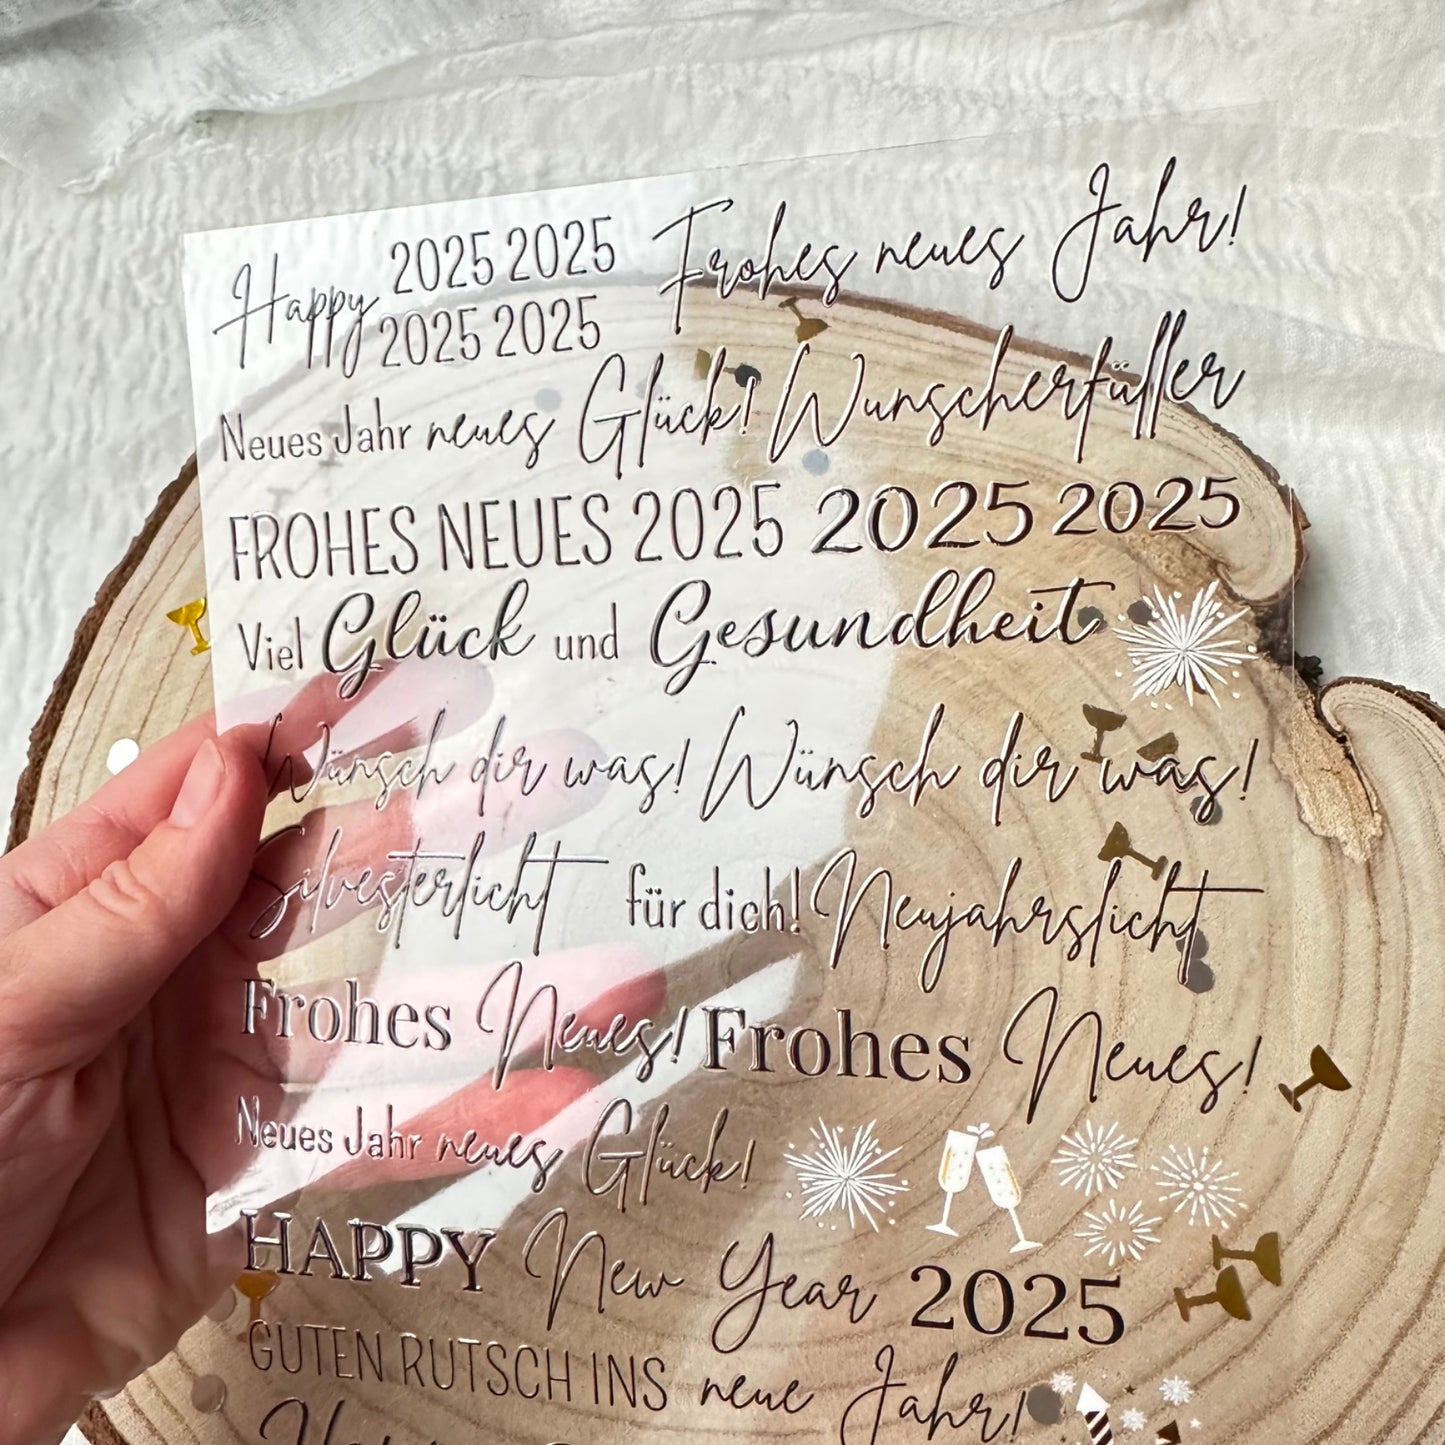 Happy 2025 2025 Frohes neues Jahr!
2025 2025
Neues Jahr neues Glück! Wunscherfüller
FROHES NEUES 2025 2025 2025
Viel Glück und Gesundheit
Wünsch dir was! Wünsch dir was!
Silvesterlicht für dich! Neujahrslicht
Frohes Neues! Frohes Neues!
Neues Jahr neues Glück!
HAPPY New Year 2025
GUTEN RUTSCH INS neue Jahr!